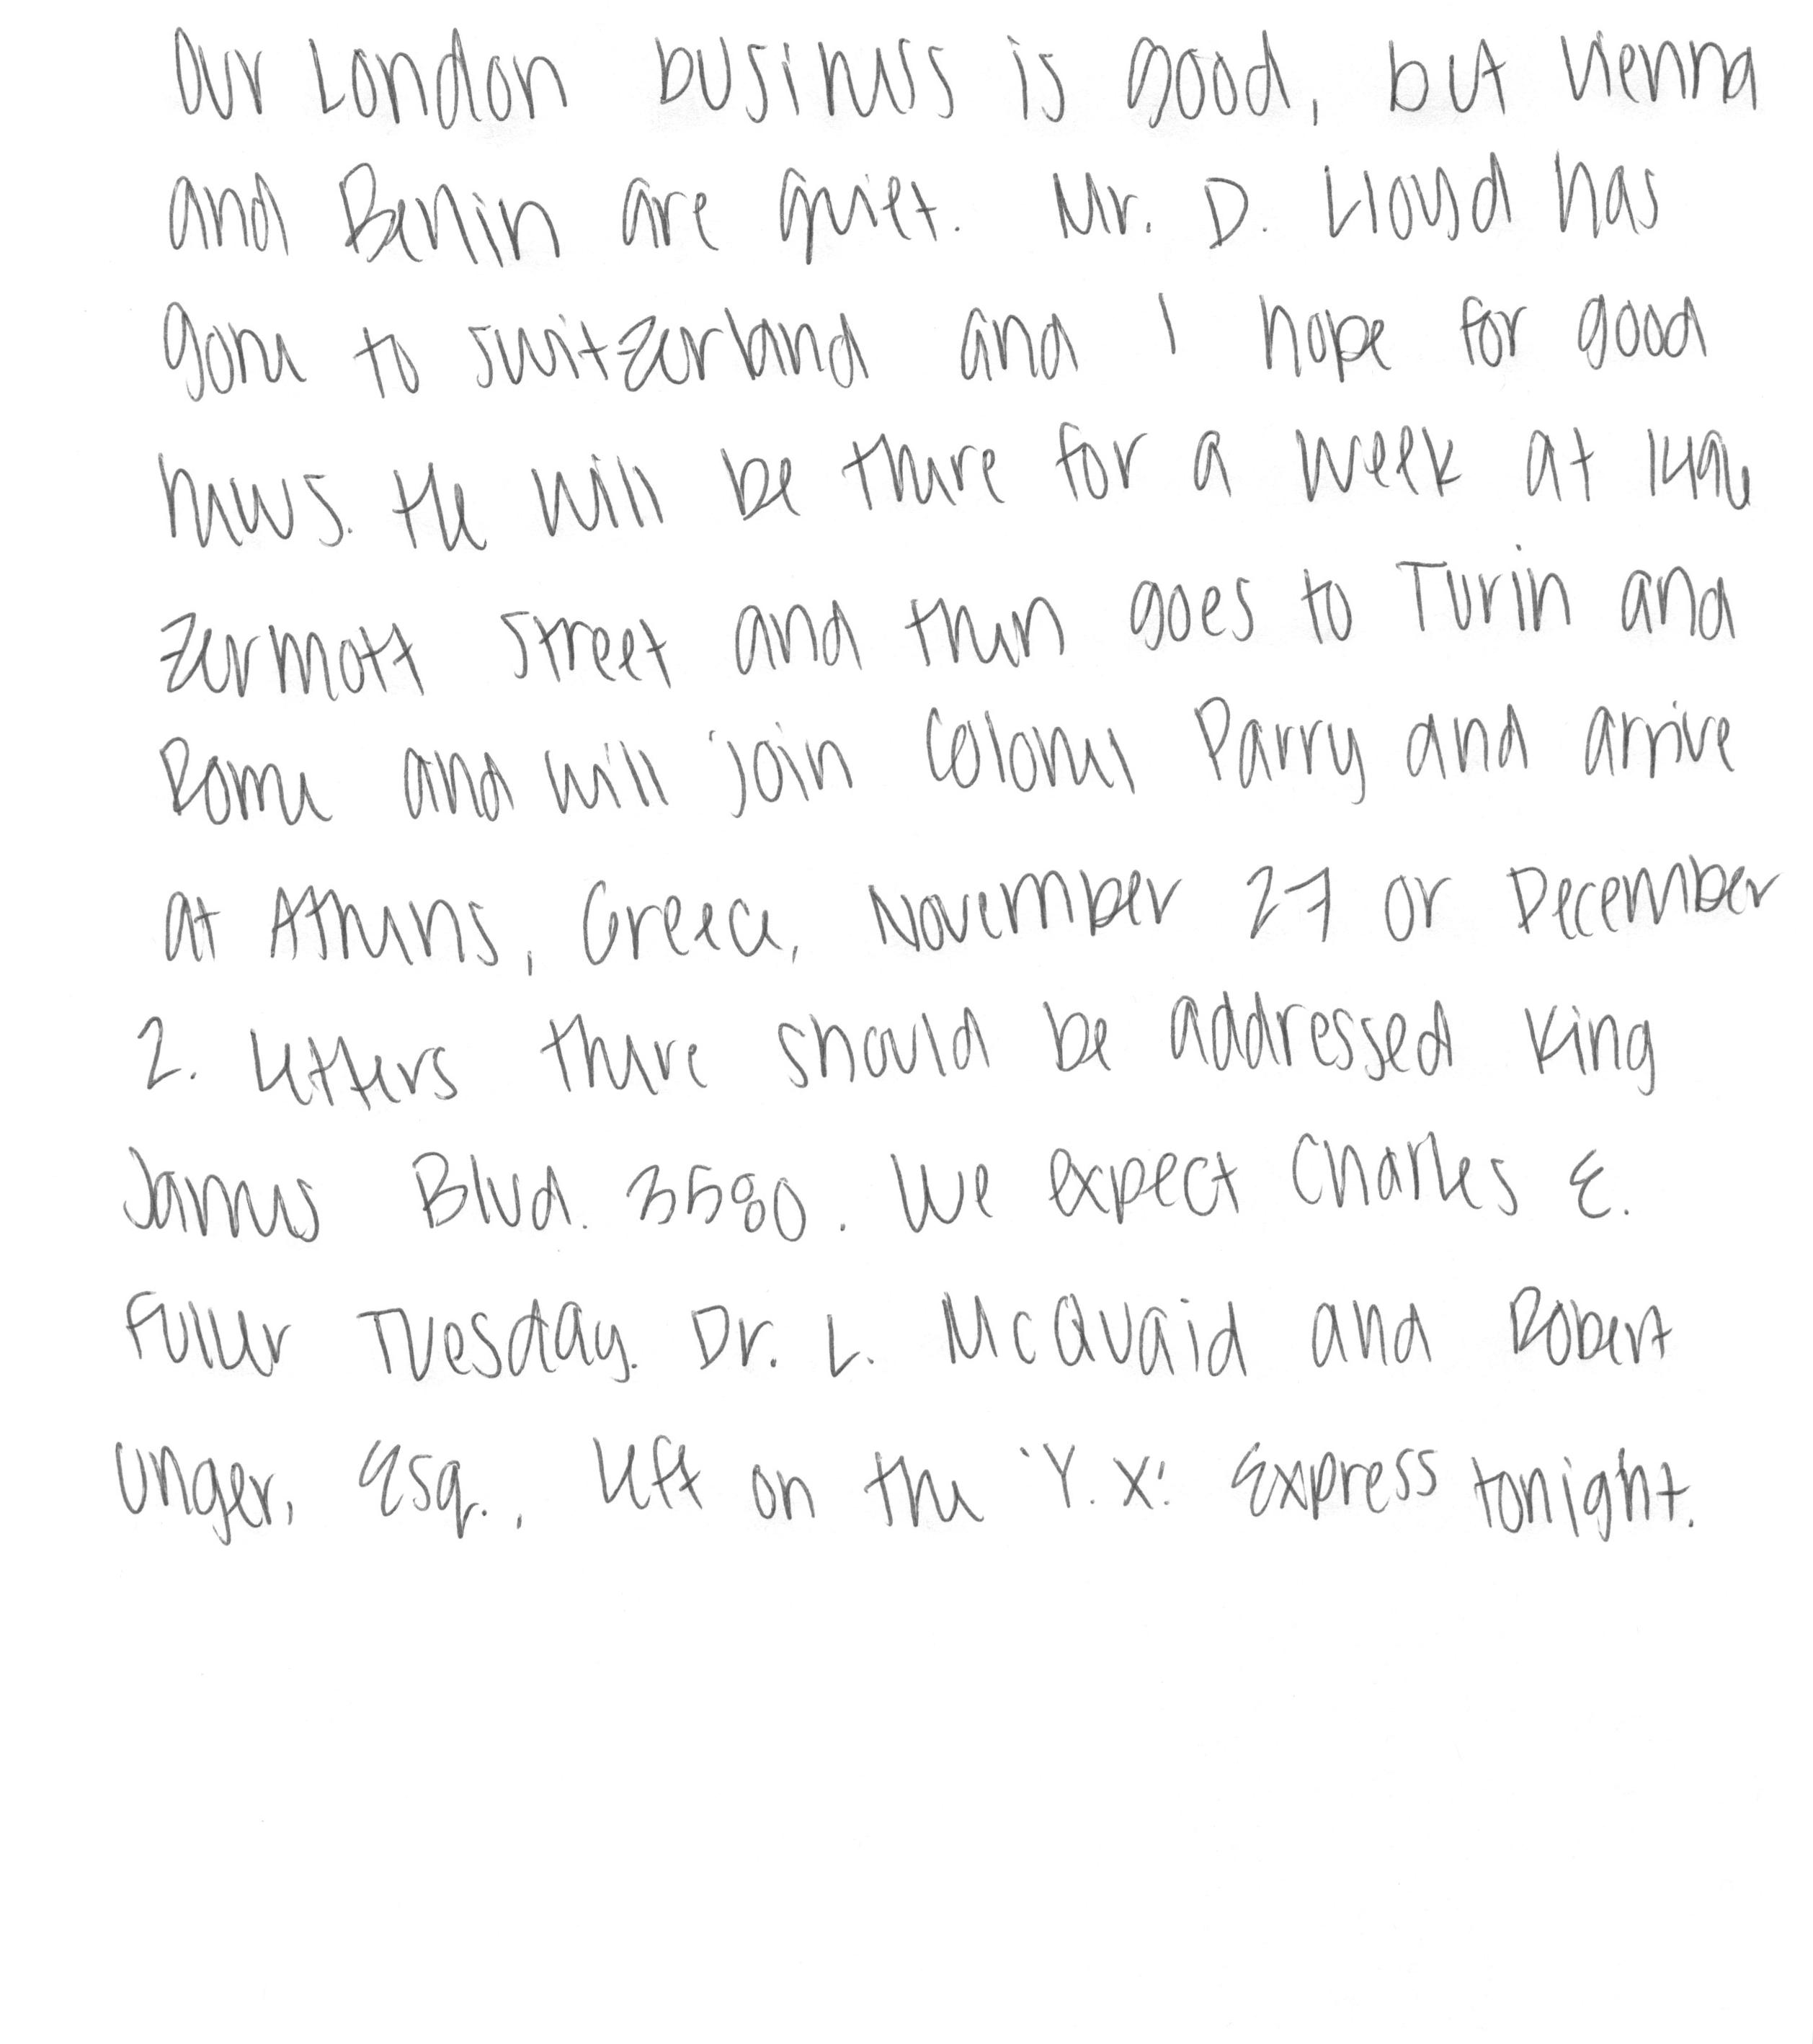 Our London business is good, but Vienna
and Benlin are quiet. Mr. D. Lloyd has
gone to Switzerland and I hope for good
news. He will be there for a week at 1496
Zermott Street and then goes to Turin and
Rome and will join Colony Parry and arrive
at Athens, Greece, November 27 or December
2. Letters there should be addressed King
James Blvd. 3580. We expect Charles E.
Fuller Tuesday. Dr. L. McQuaid and Robert
Unger, Esq., left on the 'Y.X.' Express tonight.